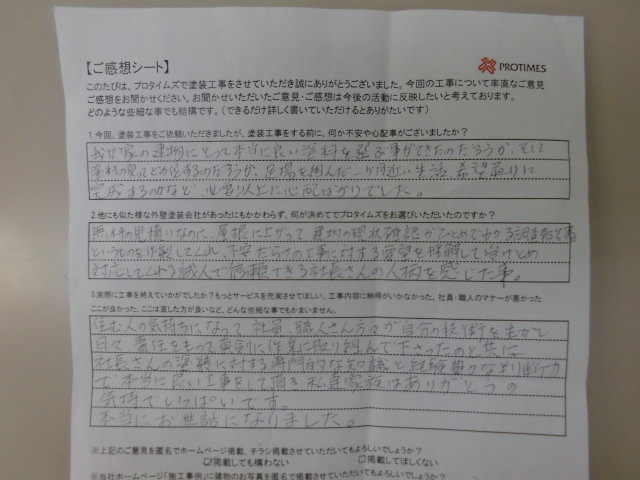 【ご感想シート】
PROTIMES
このたびは、プロタイムズで塗装工事をさせていただき誠にありがとうございました。今回の工事について率直なご意見
ご感想をお聞かせください。お聞かせいただいたご意見・ご感想は今後の活動に反映したいと考えております。
どのような些細な事でも結構です。(できるだけ詳しく書いていただけるとありがたいです)
1.今回、塗装工事をご依頼いただきましたが、塗装工事をする前に、何か不安や心配事がございましたか?
我が家の建物にとって本当に良い塗料を選ぶ事ができたのだろうか、そして
足場を組んだ一ヶ月近い生活、希望通りに
完成するのかなど、必要以上に心配ばかりでした。
2.他にも似た様な外壁塗装会社があったにもかかわらず、何が決めてでプロタイムズをお選びいただいたのですか?
無料の見積りなのに、屋根に上がって建物の現状確認がひとめでわかる調査報告書
というものを作製してくれ、不安だらけの工事に対する要望を理解して受けとめ
対応してくれる誠人で信頼できる社長さんの人柄を感じた事。
3.実際に工事を終えていかがでしたか?もっとサービスを充実させてほしい、工事内容に納得がいかなかった、社員・職人のマナーが悪かった
ここが良かった、ここは直した方が良いなど、どんな些細な事でもかまいません。
住む人の気持ちになって社員、職人さん方々が自分の技術を生かし
日々責任をもって真剣に作業に取り組んで下さったのと共に、
社長さんの塗装に対する専門的な知識と経験豊かな判断力
で本当に良い工事をして頂き私達家族はありがとうの
気持でいっぱいです。
本当にお世話になりました。
※上記のご意見を匿名でホームページ掲載、チラシ掲載させていただいてもよろしいでしょうか?
☑掲載しても構わない □掲載してほしくない
※当社ホームページ「施工事例」に建物のお写真を匿名で掲載させていただいてもよろしいでしょうか?